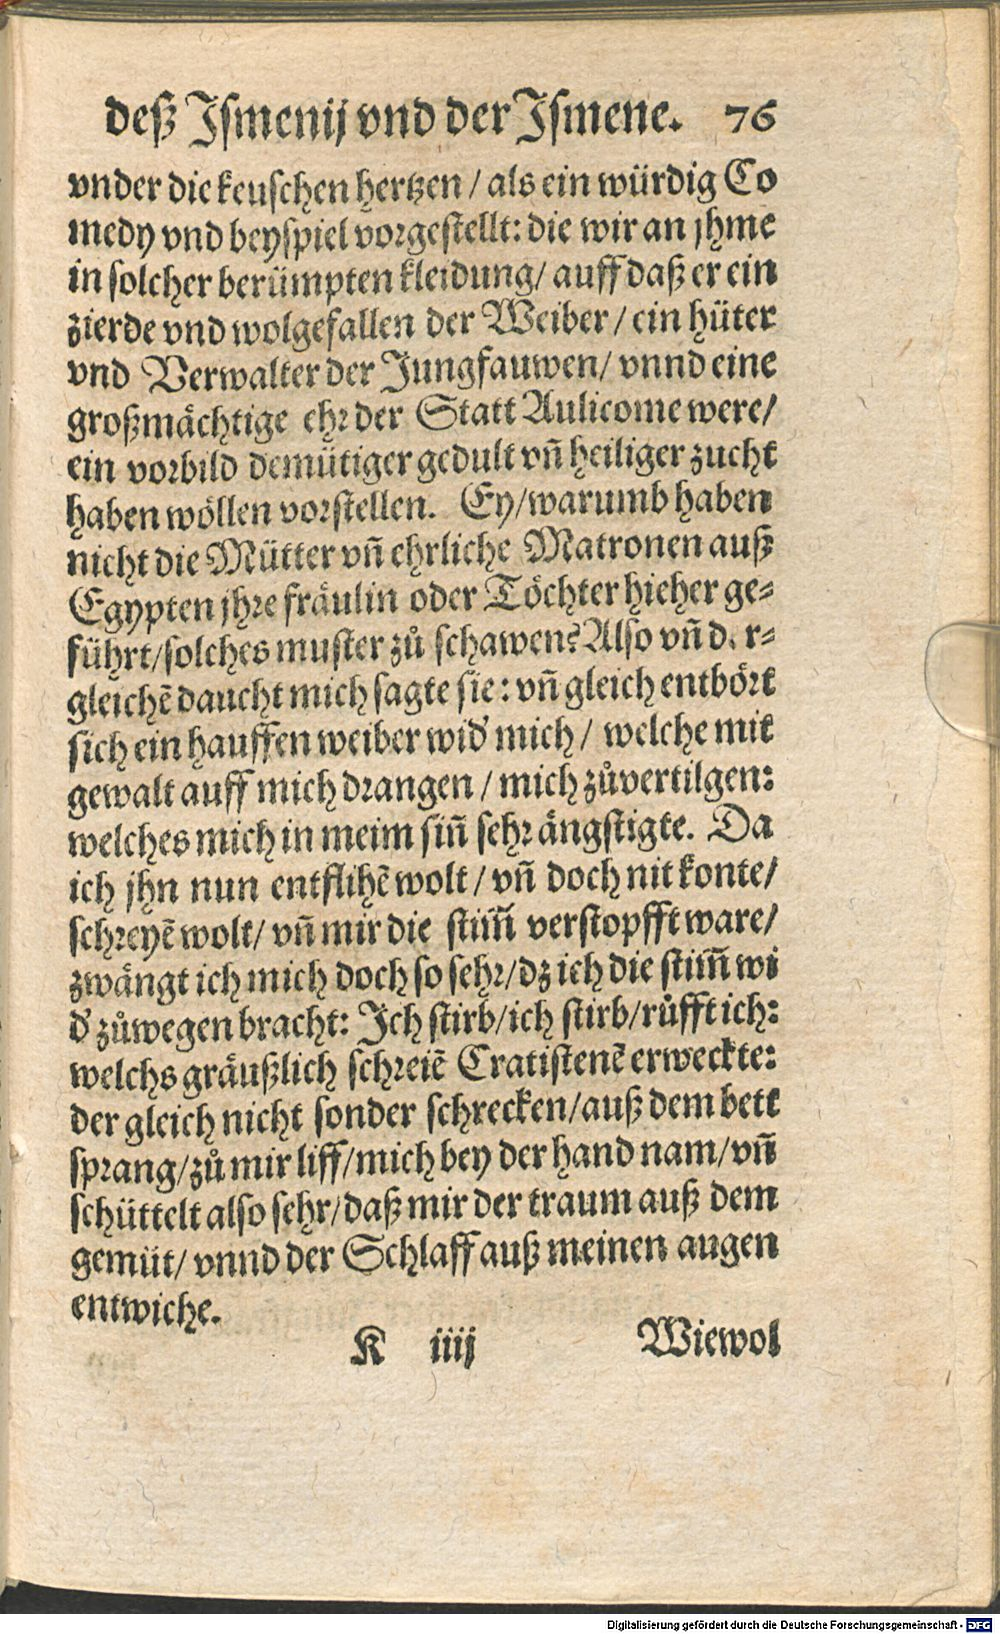 deß Iſmenij vnd der Iſmene. 76
vnder die keuſchen hertzen / als ein würdig Co
medy vnd beyſpiel vorgeſtellt: die wir an jhme
in ſolcher berümpten kleidung/ auff daß er ein
zierde vnd wolgefallen der Weiber / ein hüter
vnd Verwalter der Jungfauwen/ vnnd eine
großmåchtige ehr der Statt Aulicome were/
ein vorbild demütiger gedult vñ heiliger zucht
haben wöllen vorſtellen. Ey/warumb haben
nicht die Mütter vñ ehrliche Matronen auß
Egypten jhre fräulin oder Töchter hieher ge⸗
führt/ſolches muſter zů ſchawen? Alſo vñ d. r⸗
gleichẽ daucht mich ſagte ſie: vñ gleich entbört
ſich ein hauffen weiber wid' mich / welche mit
gewalt auff mich drangen / mich zůvertilgen:
welches mich in meim ſiñ ſehr ängſtigte. Da
ich jhn nun entflihẽ wolt / vñ doch nit konte/
ſchreyẽ wolt/ vñ mir die ſtim̃ verſtopfft ware/
zwängt ich mich doch ſo ſehr/dz ich die ſtim̃ wi
d' zůwegen bracht: Ich ſtirb/ich ſtirb/růfft ich:
welchs gräußlich ſchreiẽ Cratiſtenẽ erweckte:
der gleich nicht ſonder ſchrecken/auß dem bett
ſprang/zů mir liff/mich bey der hand nam/vñ
ſchüttelt alſo ſehr/daß mir der traum auß dem
gemüt/ vnnd der Schlaff auß meinen augen
entwiche.
K iiij Wiewol
Digitalisierung gefördert durch die Deutsche Forschungsgemeinschaft - DFG